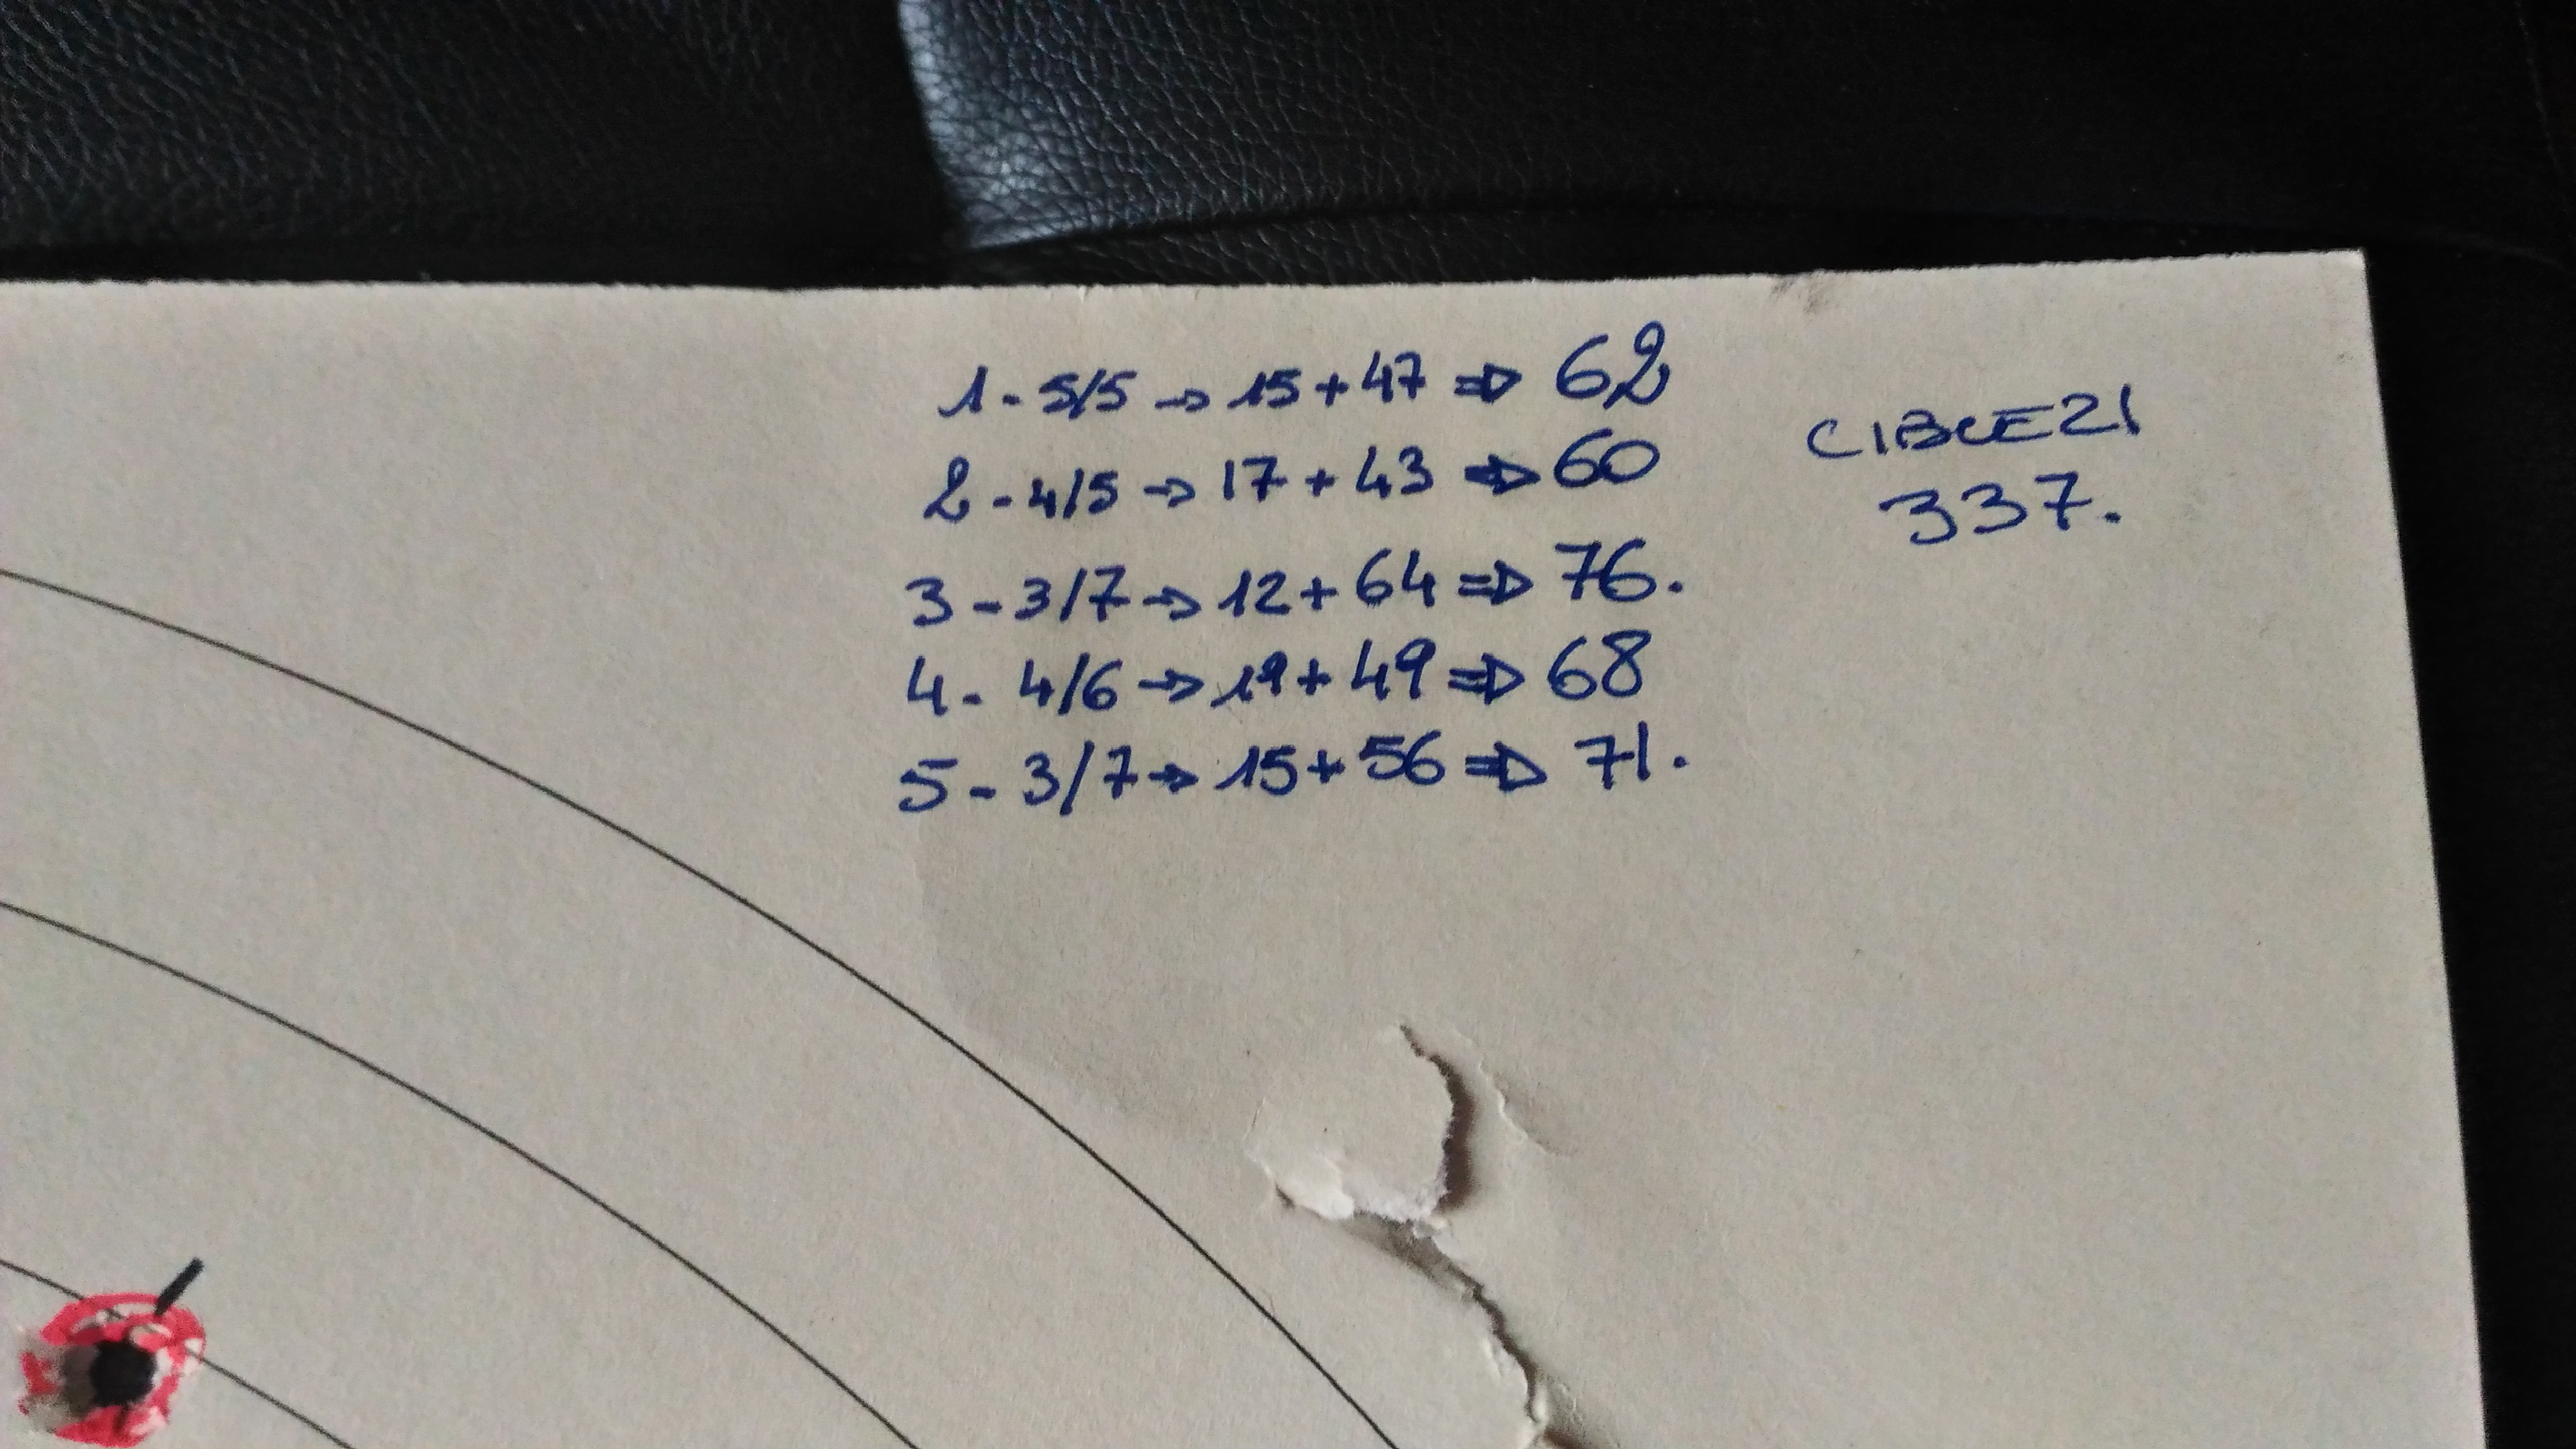 1 - 5/5 → 15 + 47 ⇒ 62
2 - 4/5 → 17 + 43 ⇒ 60
3 - 3/7 → 12 + 64 ⇒ 76.
4 - 4/6 → 19 + 49 ⇒ 68
5 - 3/7 → 15 + 56 ⇒ 71.
CIBLE 21
337.